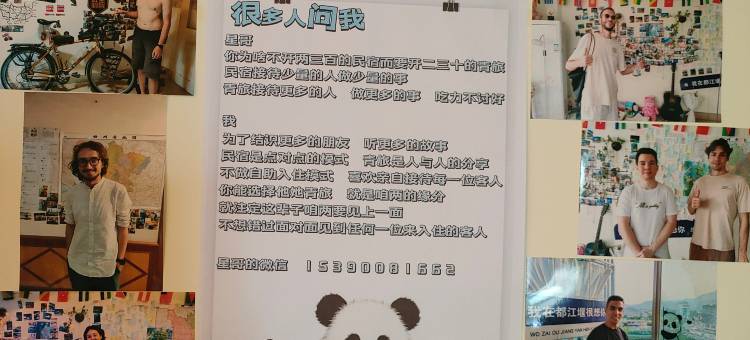 很多人问我
星哥
你为啥不开两三百的民宿而要开二三十的青旅
民宿接待少量的人做少量的事
青旅接待更多的人 做更多的事 吃力不讨好
我
为了结识更多的朋友 听更多的故事
民宿是点对点的模式 青旅是人与人的分享
不做自助入住模式 喜欢亲自接待每一位客人
你能选择他她青旅 就是咱两的缘分
就注定这辈子咱两要见上一面
不想错过面对面见到任何一位来入住的客人
星哥的微信 15390081662
我在都江堰
我在都江堰很想你
WO ZAI DU JIANG YAN HEN